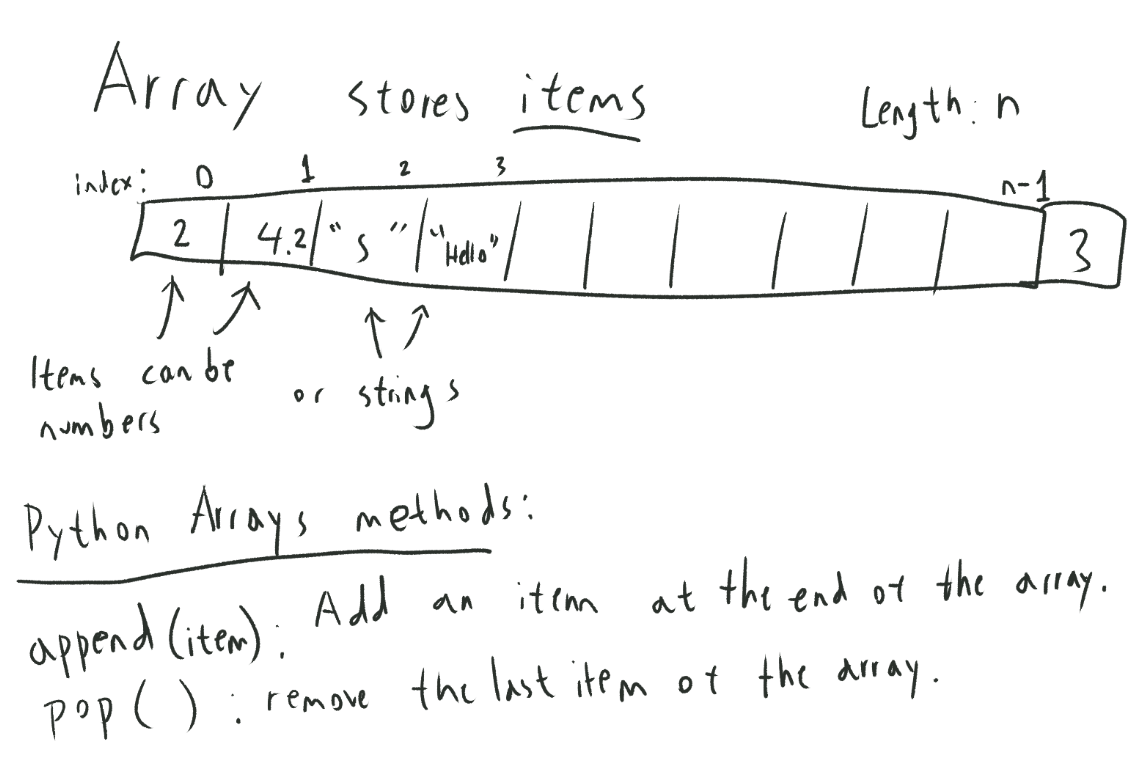 Array stores items Length: n
index: 0 1 2 3 n-1
2 4.2 "s" "Hello" 3
Items can be
numbers
or strings
Python Arrays methods:
append(item): Add an item at the end of the array.
pop( ): remove the last item of the array.